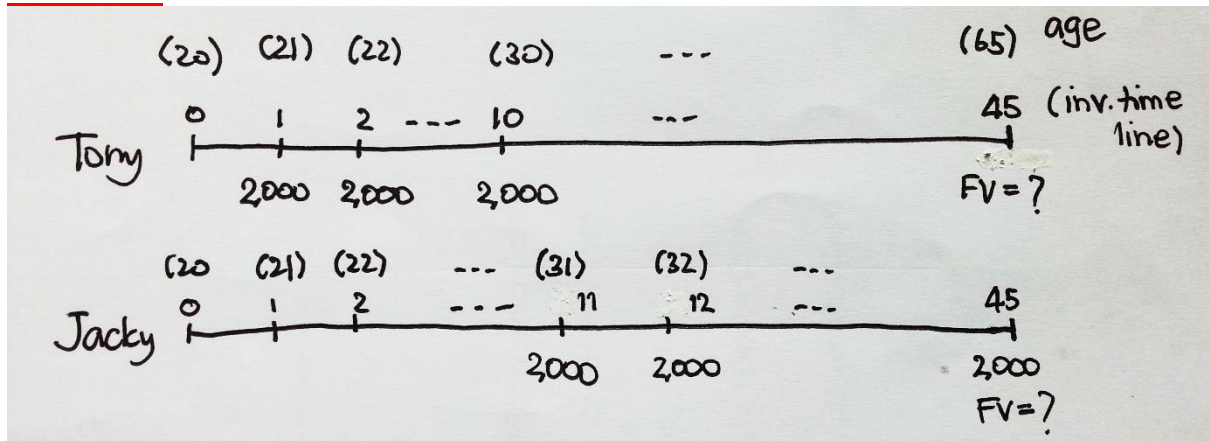 (20) (21) (22) (30) --- (65) age
0 1 2 --- 10 --- 45 (inv. time
line)
Tony
2,000 2,000 2,000 FV = ?
(20 (21) (22) --- (31) (32) ---
0 1 2 ---- 11 12 --- 45
Jacky
2,000 2,000 2,000
FV = ?